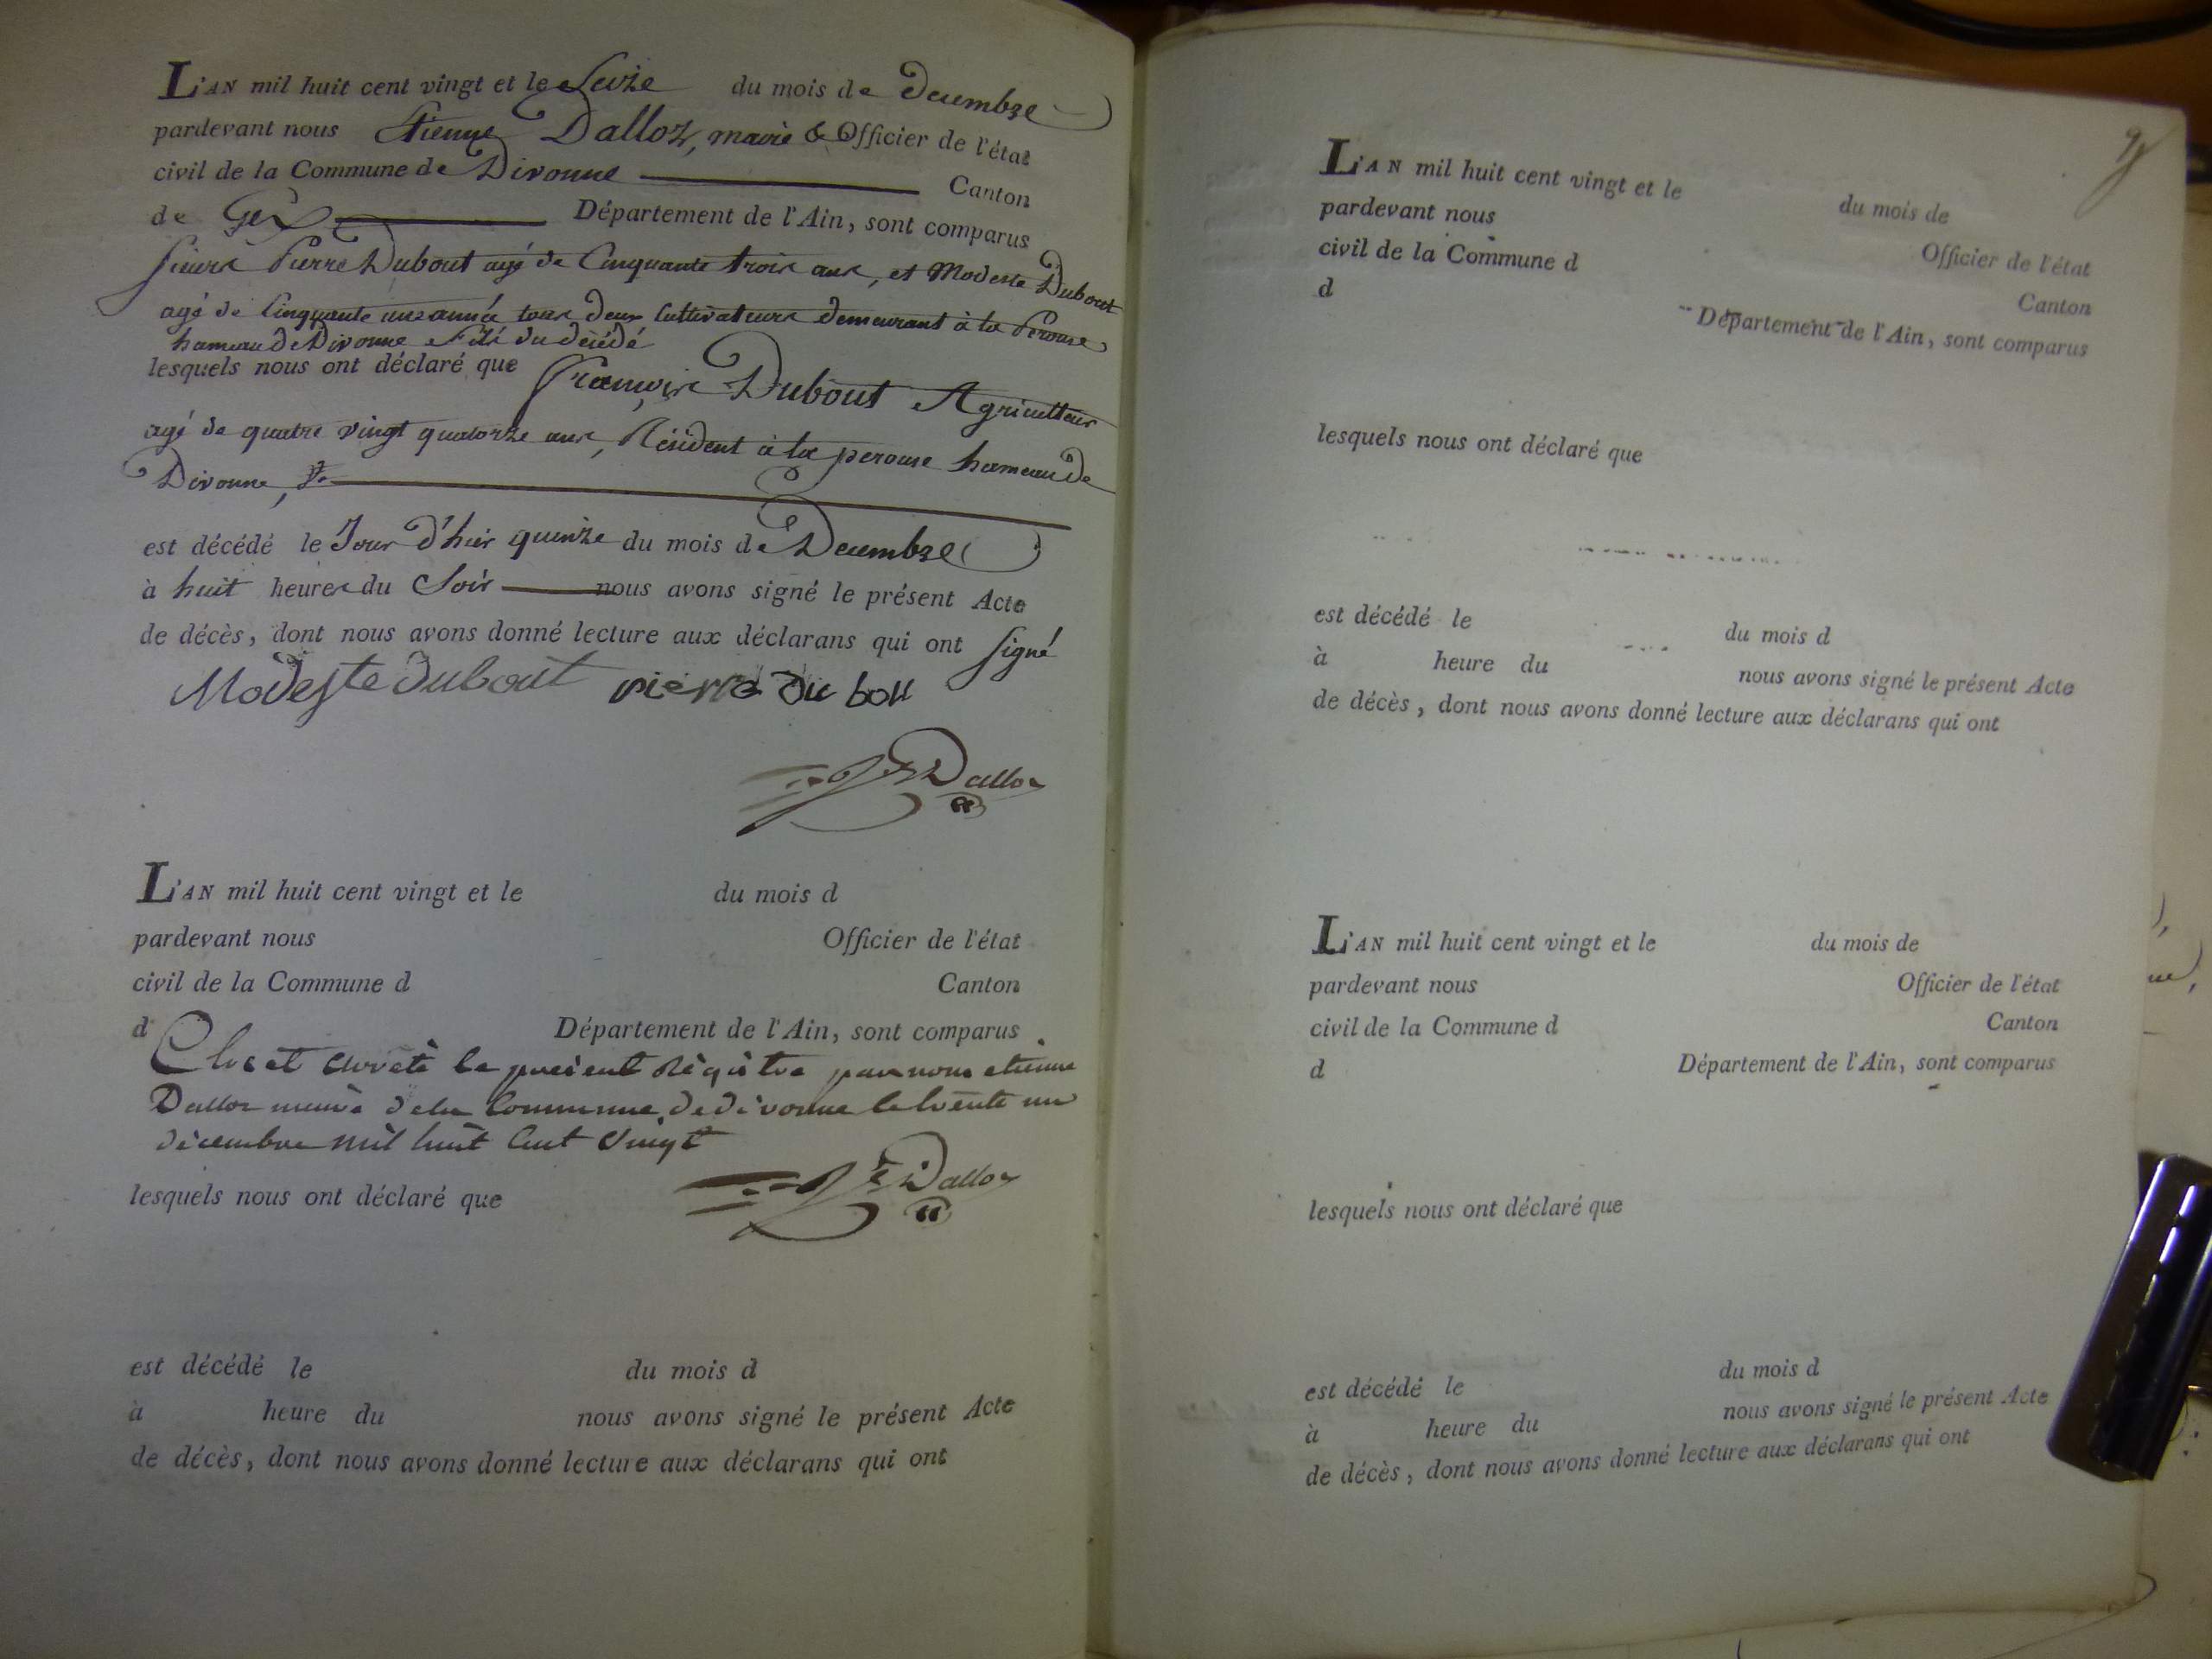 L'AN mil huit cent vingt et le Seize du mois de Decembre
pardevant nous Etienne Dalloz, maire & Officier de l'état
civil de la Commune de Divonne Canton
de Gex Département de l'Ain, sont comparus
Sieurs Pierre Dubout agé de Cinquante trois ans, et Modeste Dubout
agé de Cinquante une année tous deux Cultivateurs demeurant à la Perouse
hameau de Divonne Fils du décédé
lesquels nous ont déclaré que François Dubout Agriculteur
agé de quatre vingt quatorze ans, Résident à la perouse hameau de
Divonne,
est décédé le Jour d'hier quinze du mois de Decembre
à huit heures du Soir nous avons signé le présent Acte
de décès, dont nous avons donné lecture aux déclarans qui ont signé
Modeste dubout pierre du bou
Dalloz
L'AN mil huit cent vingt et le du mois d
pardevant nous Officier de l'état
civil de la Commune d Canton
d Département de l'Ain, sont comparus
Clos et arrèté le present règitre par nous etienne
Dalloz maire de la Commune de divonne le trente un
dècembre mil huit Cent vingt
lesquels nous ont déclaré que
Dalloz
est décédé le du mois d
à heure du nous avons signé le présent Acte
de décès, dont nous avons donné lecture aux déclarans qui ont
9
L'AN mil huit cent vingt et le du mois de
pardevant nous Officier de l'état
civil de la Commune d Canton
d Département de l'Ain, sont comparus
lesquels nous ont déclaré que
est décédé le du mois d
à heure du nous avons signé le présent Acte
de décès, dont nous avons donné lecture aux déclarans qui ont
L'AN mil huit cent vingt et le du mois de
pardevant nous Officier de l'état
civil de la Commune d Canton
d Département de l'Ain, sont comparus
lesquels nous ont déclaré que
est décédé le du mois d
à heure du nous avons signé le présent Acte
de décès, dont nous avons donné lecture aux déclarans qui ont